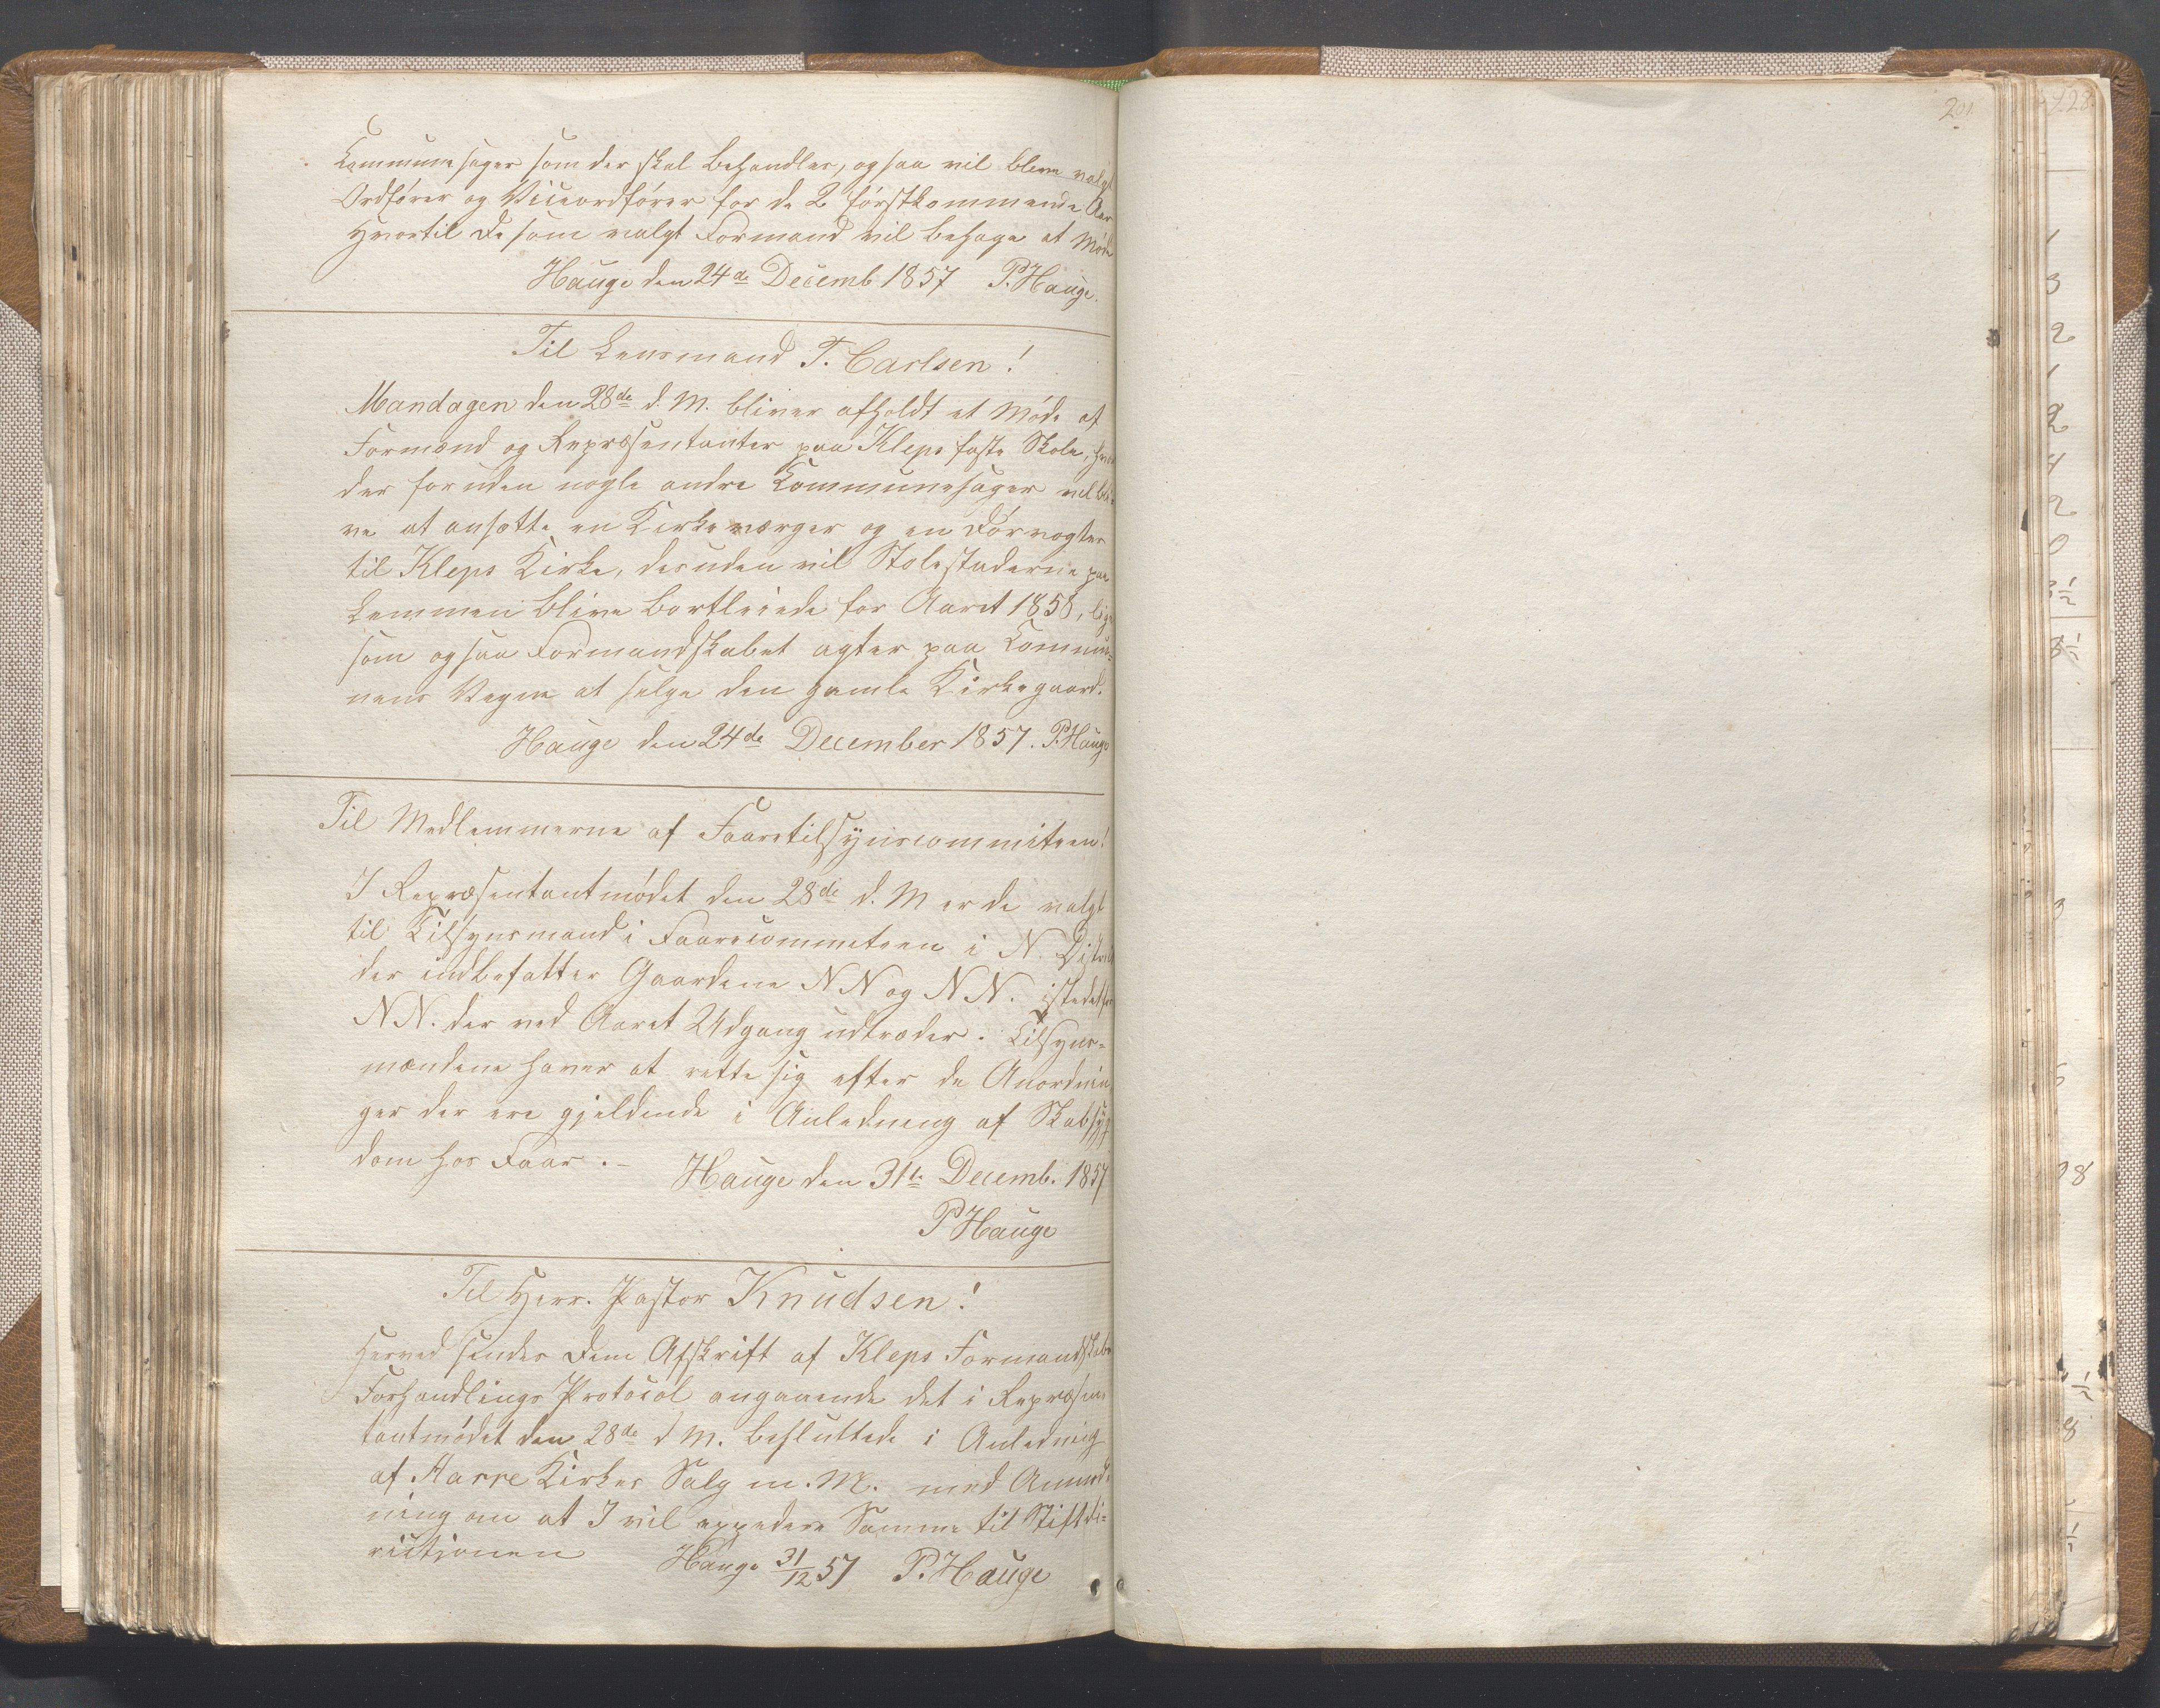 Communesager som der skal behandles, ogsaa vil blive valgt
Ordfører og Viceordfører for de 2 førstkommende Aar
Hvortil De som valgt Formand vil behage at Møde
Hauge den 24de Decemb 1857 P. Hauge.
Til Lensmand T. Carlsen!
Mandagen den 28de d. M. bliver afholdt et Møde af
Formænd og Repræsentanter paa Kleps faste Skole, hvor
der foruden nogle andre Communesager vil bli-
ve at ansætte en Kirkeværger og en Dørvogter
til Kleps Kirke, desuden vil Stolestaderne paa
Lemmen blive bortleiede for Aaret 1858, lige
som ogsaa Formandskabet agter paa Commu-
nens Vegne at sælge den gamle Kirkegaard.
Hauge den 24de December 1857. P. Hauge
Til Medlemmerne af Faaretilsynscommiteen!
I Repræsentantmødet den 28de d. M er de valgt
til Tilsynsmand i Faarecommiteen i N. Distrikt
der indbefatter Gaardene N N og N N. istedetfor
N N. der ved Aaret Udgang udtræder. Tilsyns-
mændene haver at rette sig efter de Anordnin
ger der ere gjeldende i Anledning af Skabsyg
dom hos Faar.-
Hauge den 31te Decemb. 1857
P Hauge
Til Herr. Pastor Knudsen!
Herved sendes Dem Afskrift af Kleps Formandskabs
Forhandlings Protocol angaaende det i Repræsen
tantmødet den 28de d M. besluttede i Anledning
af Aarre Kirkes Salg m. M. med Anmod-
ning om at I vil expedere Samme til Stiftdi-
rectionen Hauge 31/12 57 P. Hauge
201